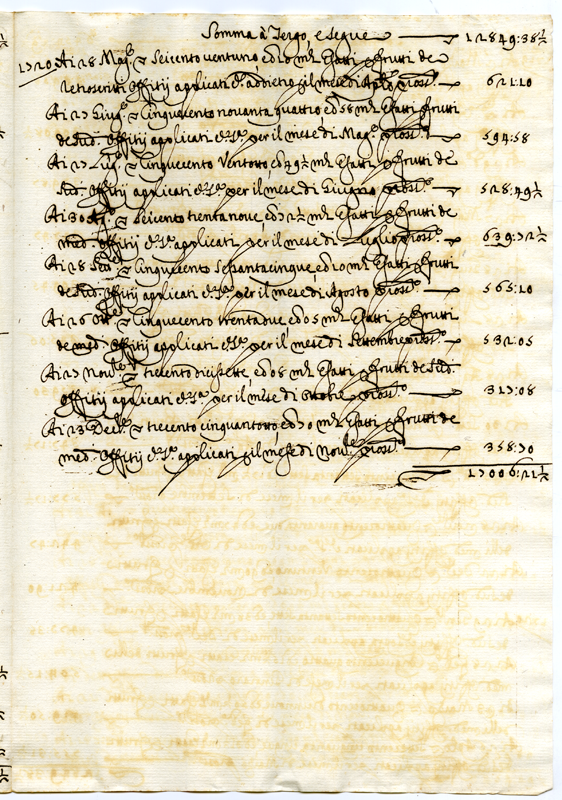 Somma à Tergo, e segue — 12849:38½
1720 Ai 28 Mag.º Seicento ventuno ed 10 m.li Esatti Frutti de
retroscritti Offitij applicati addietro il mese di — 621:10
Ai 27 Giug.º Cinquecento novanta quattro ed 58 m.li Esatti Frutti
de sud. Offitij applicati per il mese di Mag.º — 594:58
Ai 27 Lug.º Cinquecento Ventotto ed 49½ m.li Esatti Frutti de
sud. Offitij applicati per il mese di Giugno — 528:49½
Ai 30 Ag.º Seicento trentanove, ed 72½ m.li Esatti Frutti de
med. Offitij applicati per il mese di Luglio — 639:72½
Ai 28 Sett.e Cinquecento Sessantacinque, ed 10 m.li Esatti Frutti
de sud. Offitij applicati per il mese di Agosto — 565:10
Ai 26 Ott.e Cinquecento trentadue ed 05 m.li Esatti Frutti
de med. Offitij applicati per il mese di Settembre — 532:05
Ai 27 Nov.e trecento diciesette ed 08 m.li Esatti Frutti de sud.
Offitij applicati per il mese di Ottobre — 317:08
Ai 23 Dec.e trecento cinquantotto ed 70 m.li Esatti Frutti de
med. Offitij applicati il mese di Nov.e — 358:70
17006:21½